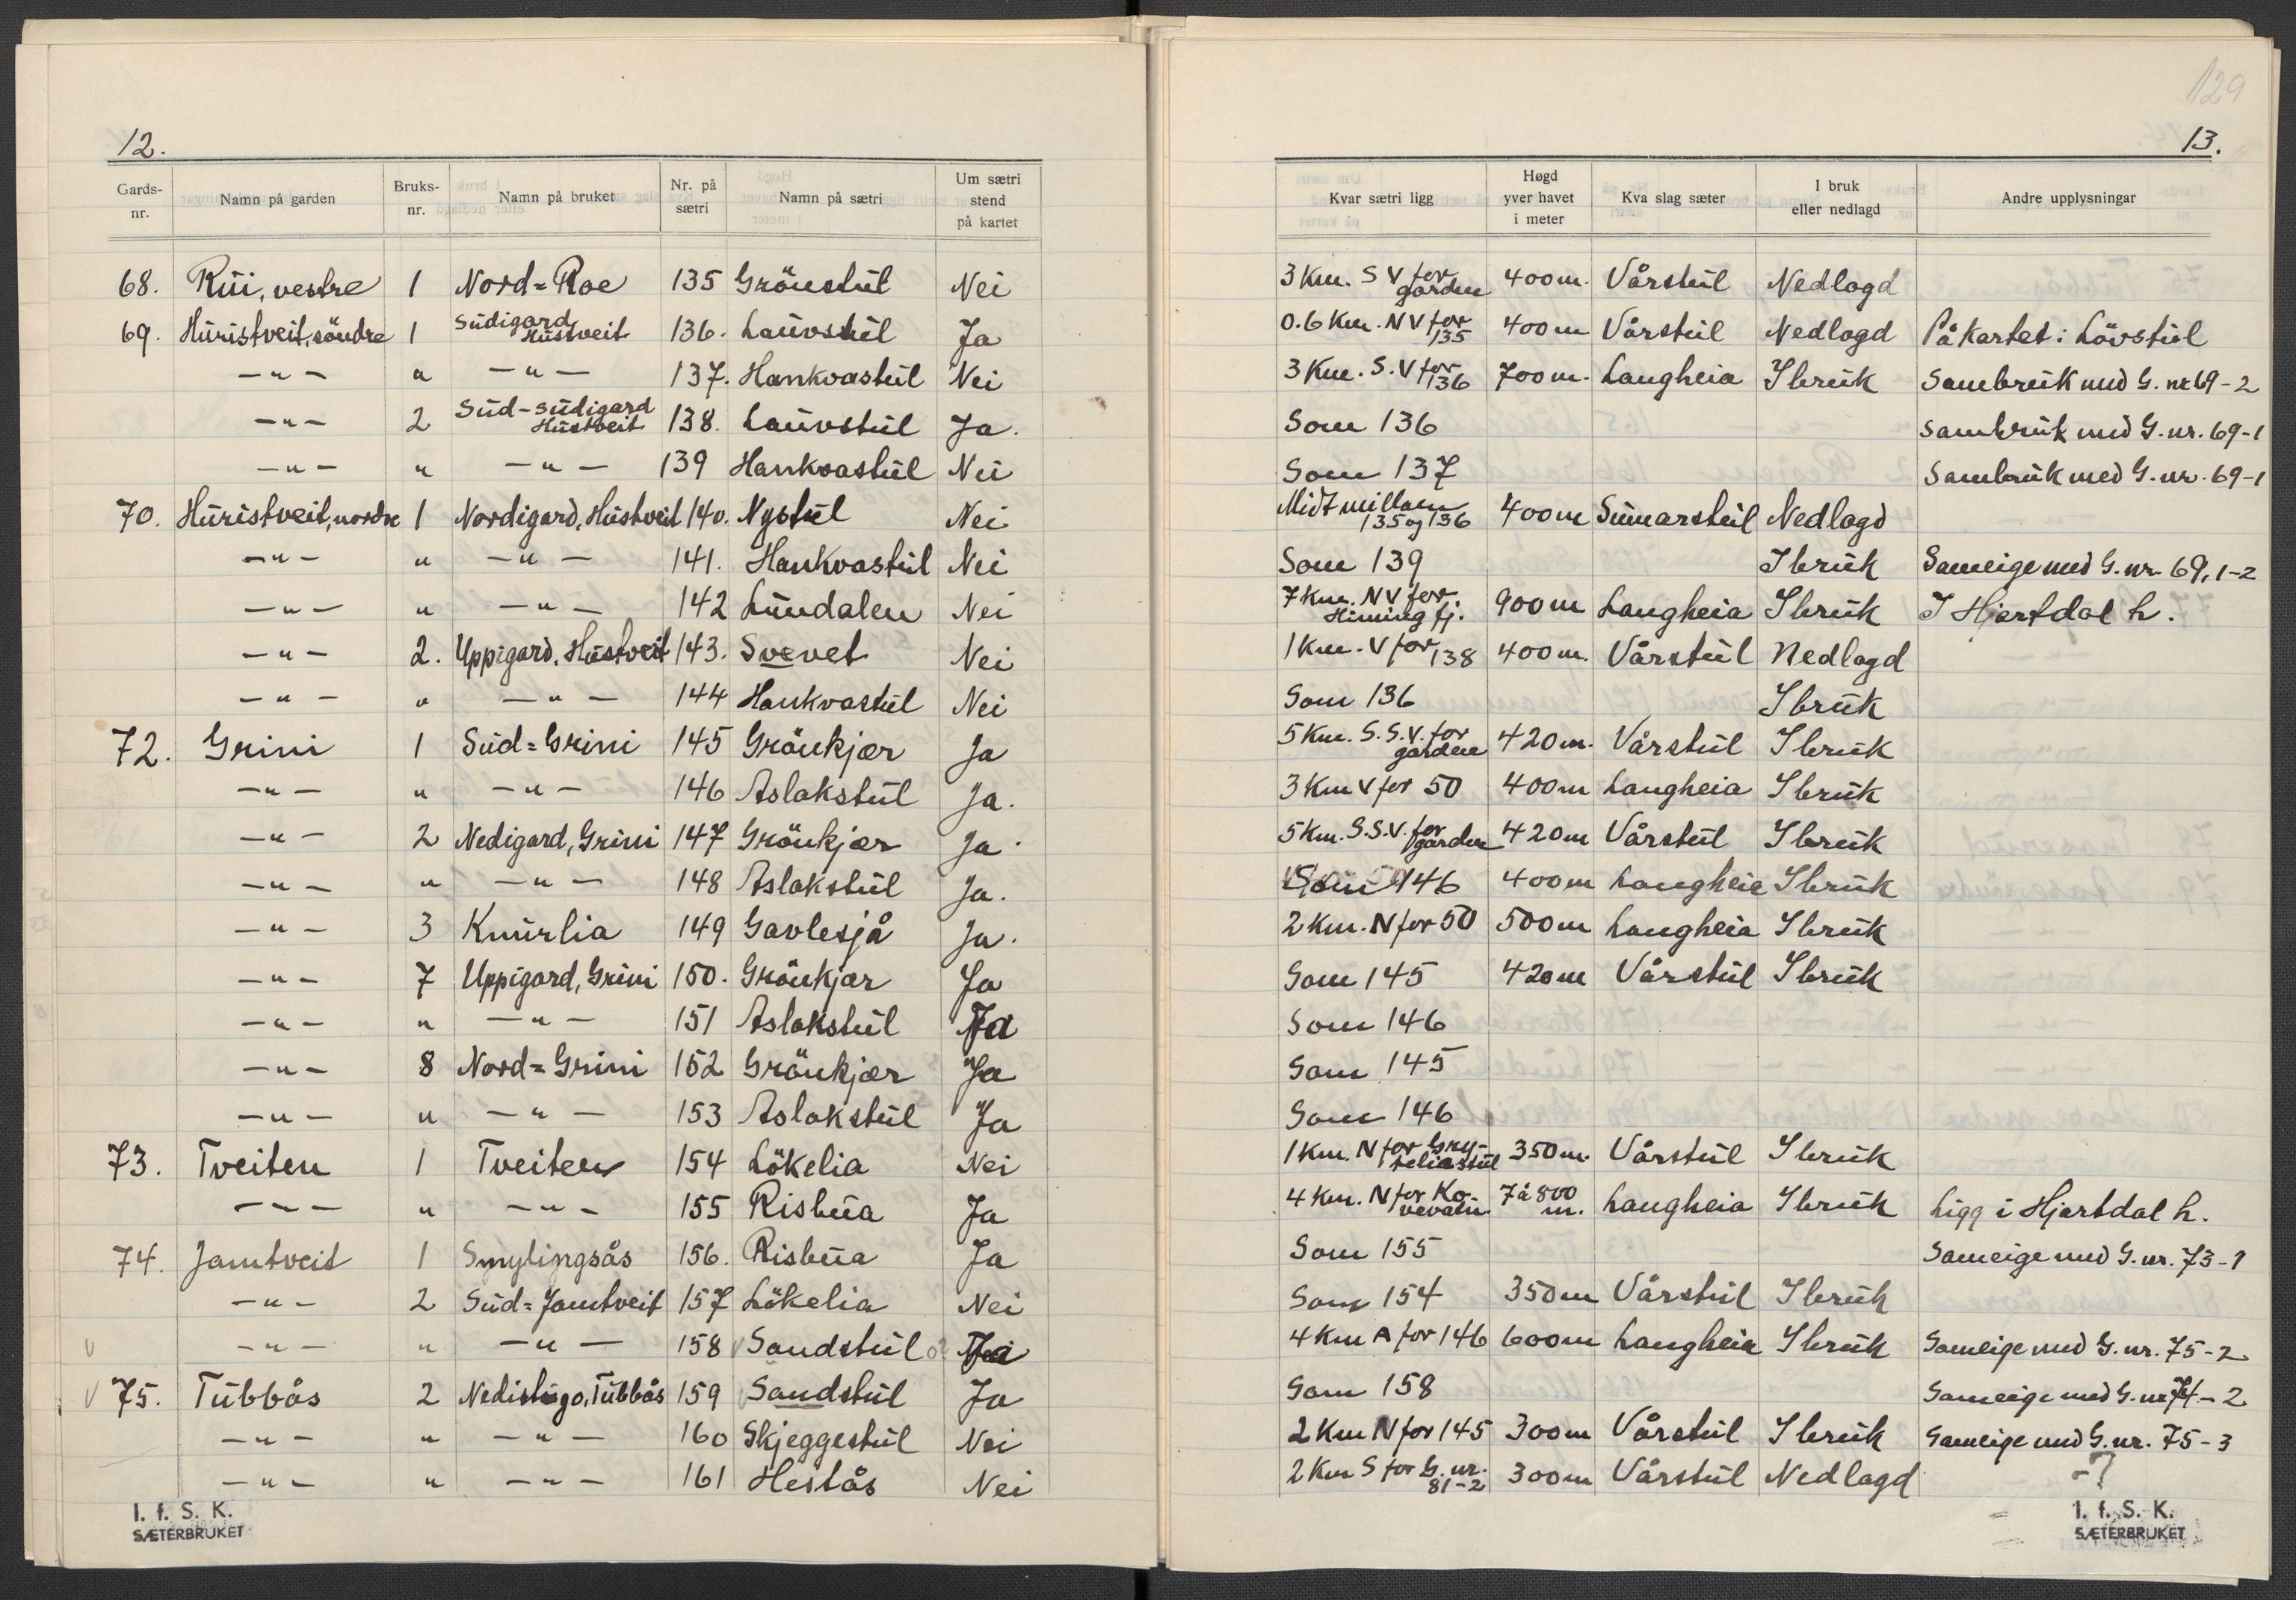 12.
Gards-nr. Namn på garden Bruks-nr. Namn på bruket Nr. på sætri Namn på sætri Um sætri stend på kartet
68. Rŭi, vestre 1 Nord=Roe 135 Grönstŭl Nei
69. Hŭristveit, söndre 1 Sŭdigard Hŭstveit 136. Laŭvstŭl Ja
-"- " -"- 137. Hankvastŭl Nei
-"- 2 Sŭd-Sŭdigard Hŭstveit 138. Laŭvstŭl Ja.
-"- " -"- 139 Hankvastŭl Nei
70. Hŭristveit, nordre 1 Nordigard, Hŭstveit 140. Nystŭl Nei
-"- " -"- 141. Hankvastŭl Nei
-"- " -"- 142 Lŭndalen Nei
-"- 2. Uppigard, Hŭstveit 143. Svevet Nei
-"- " -"- 144 Hankvastŭl Nei
72. Grini 1 Sŭd=Grini 145 Grönkjær Ja
-"- " -"- 146 Aslakstŭl Ja.
-"- 2 Nedigard, Grini 147 Grönkjær Ja.
-"- " -"- 148 Aslakstŭl Ja.
-"- 3 Knŭrlia 149 Gavlesjå Ja.
-"- 7 Uppigard, Grini 150. Grönkjær Ja
-"- " -"- 151 Aslakstŭl Ja
-"- 8 Nord=Grini 152 Grönkjær Ja
-"- " -"- 153 Aslakstŭl Ja
73. Tveiten 1 Tveiten 154 Lökelia Nei
-"- " -"- 155 Risbŭa Ja
74. Jamtveit 1 Smylingsås 156. Risbŭa Ja
-"- 2 Sŭd=Jamtveit 157 Lökelia Nei
v -"- " -"- 158 v Sandstŭl Ja
v 75. Tŭbbås 2 Nedistŭgo, Tŭbbås 159 v Sandstŭl Ja
-"- " -"- 160 Skjeggestŭl Nei
-"- " -"- 161 Hestås Nei
I. f. S. K.
SÆTERBRUKET
129
13.
Kvar sætri ligg Høgd yver havet i meter Kva slag sæter I bruk eller nedlagd Andre upplysningar
3 Km. S V for garden 400 m. Vårstŭl Nedlagd
0.6 Km. N V for 135 400 m Vårstŭl Nedlagd På kartet: Lövstŭl
3 Km. S. V for 136 700 m. Langheia I brŭk Sambrŭk med G. nr 69-2
Som 136 Sambrŭk med G. nr. 69-1
Som 137 Sambrŭk med G. nr. 69-1
Midt millom 135 og 136 400 m Sŭmarstŭl Nedlagd
Som 139 I brŭk Sameige med G. nr. 69, 1-2
7 Km. N V for Himing fj. 900 m Langheia I brŭk I Hjartdal h.
1 Km. V for 138 400 m. Vårstŭl Nedlagd
Som 136 I brŭk
5 Km. S. S. V. for garden 420 m. Vårstŭl I brŭk
3 Km V for 50 400 m Langheia I brŭk
5 Km. S. S. V. for garden 420 m Vårstŭl I brŭk
Som 146 400 m Langheia I brŭk
2 Km. N for 50 500 m Langheia I brŭk
Som 145 420 m Vårstŭl I brŭk
Som 146
Som 145
Som 146
1 Km. N for Gryteliastŭl 350 m. Vårstŭl I brŭk
4 Km. N for Kovevatn 7 à 800 m. Langheia I brŭk Ligg i Hjartdal h.
Som 155 Sameige med G. nr. 73-1
Som 154 350 m Vårstŭl I brŭk
4 Km A for 146 600 m Langheia I brŭk Sameige med G. nr. 75-2
Som 158 Sameige med G. nr 74-2
2 Km N for 145 300 m Vårstŭl I brŭk Sameige med G. nr. 75-3
2 Km S for G. nr. 81-2 300 m Vårstŭl Nedlagd -?
I. f. S. K.
SÆTERBRUKET